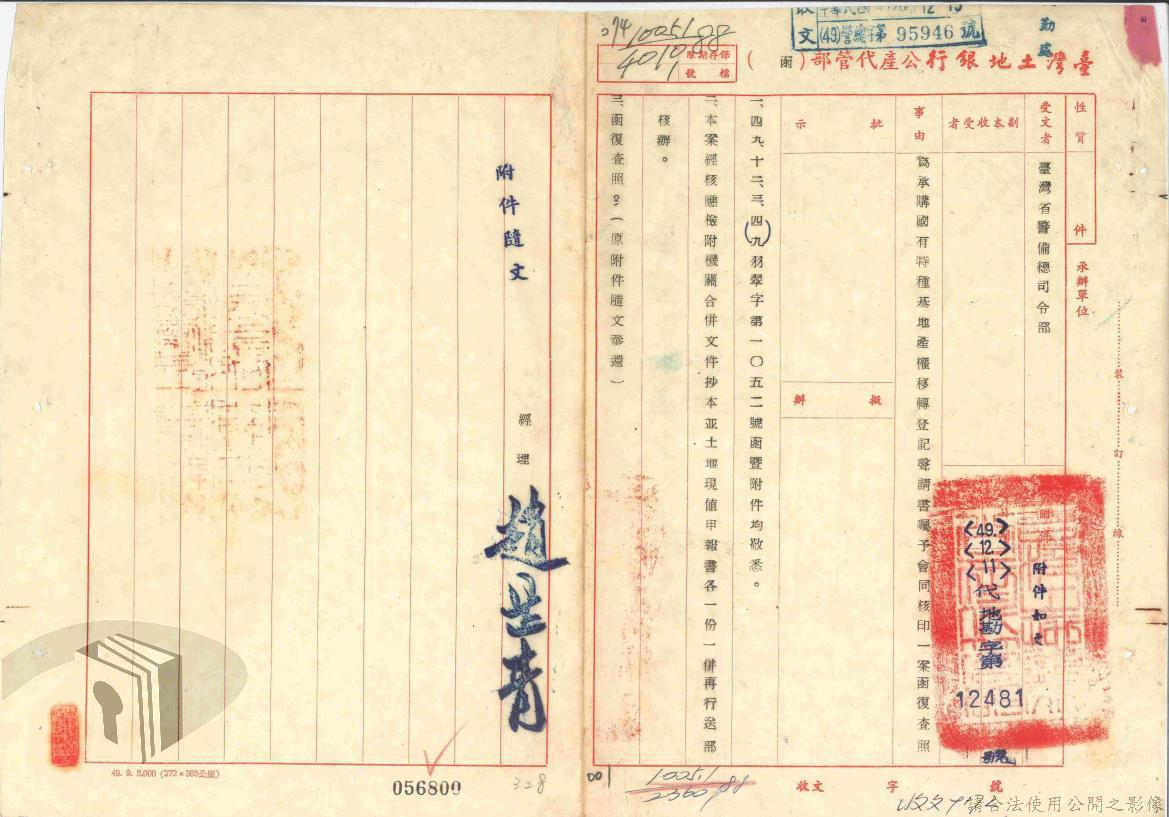 臺灣土地銀行公產代管部(函)
勤處
文(49)營總字第95946號
12 15
保存期限
檔號
性質
件
受文者
臺灣省警備總司令部
承辦單位
副本收受者
批示
擬辦
事由
為承購國有特種基地產權移轉登記聲請書囑予會同核印一案函復查照
附件
附件如文
49.12.11
代地勘字第
12481
號
一、四九、十二、三、(四九)羽翠字第一〇五二號函暨附件均敬悉。
二、本案經核應檢附機關合併文件抄本並土地現值申報書各一份一併再行送部
核辦。
三、函復查照。(原附件隨文奉還)
裝訂線
收文 字 號
附件隨文
經理 趙呈青
49. 9. 5,000 (272×388公厘)
056800
328
001
請合法使用公開之影像